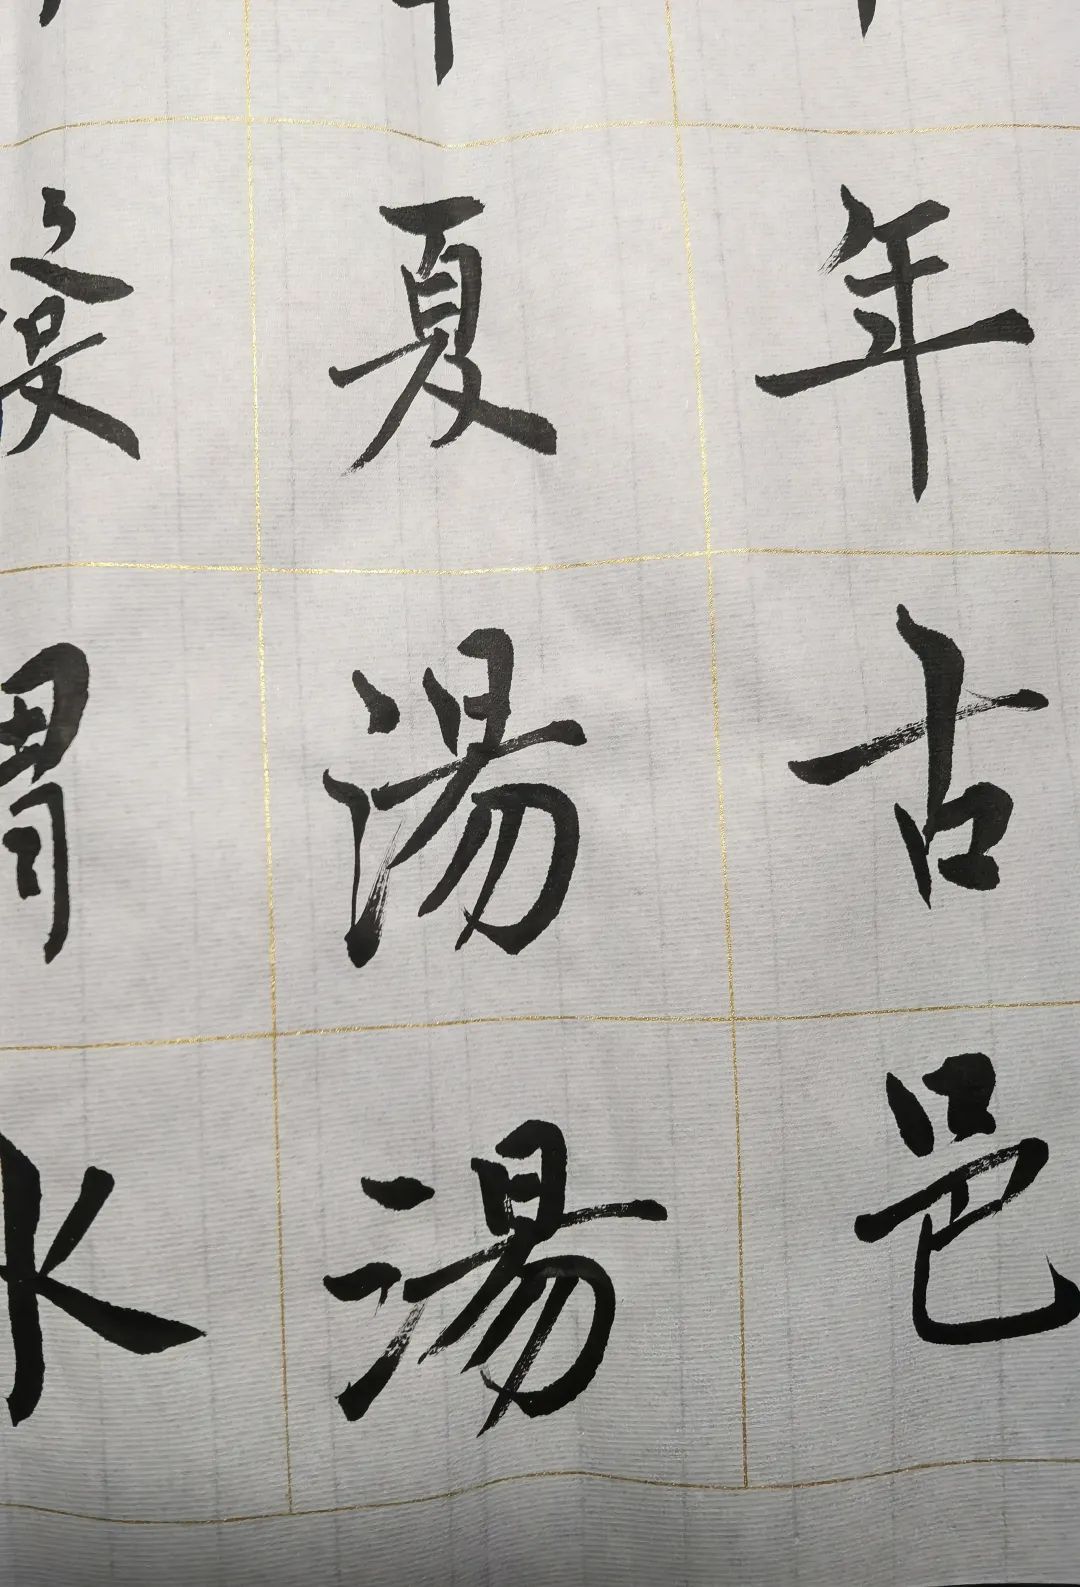 年古邑
夏湯湯
水